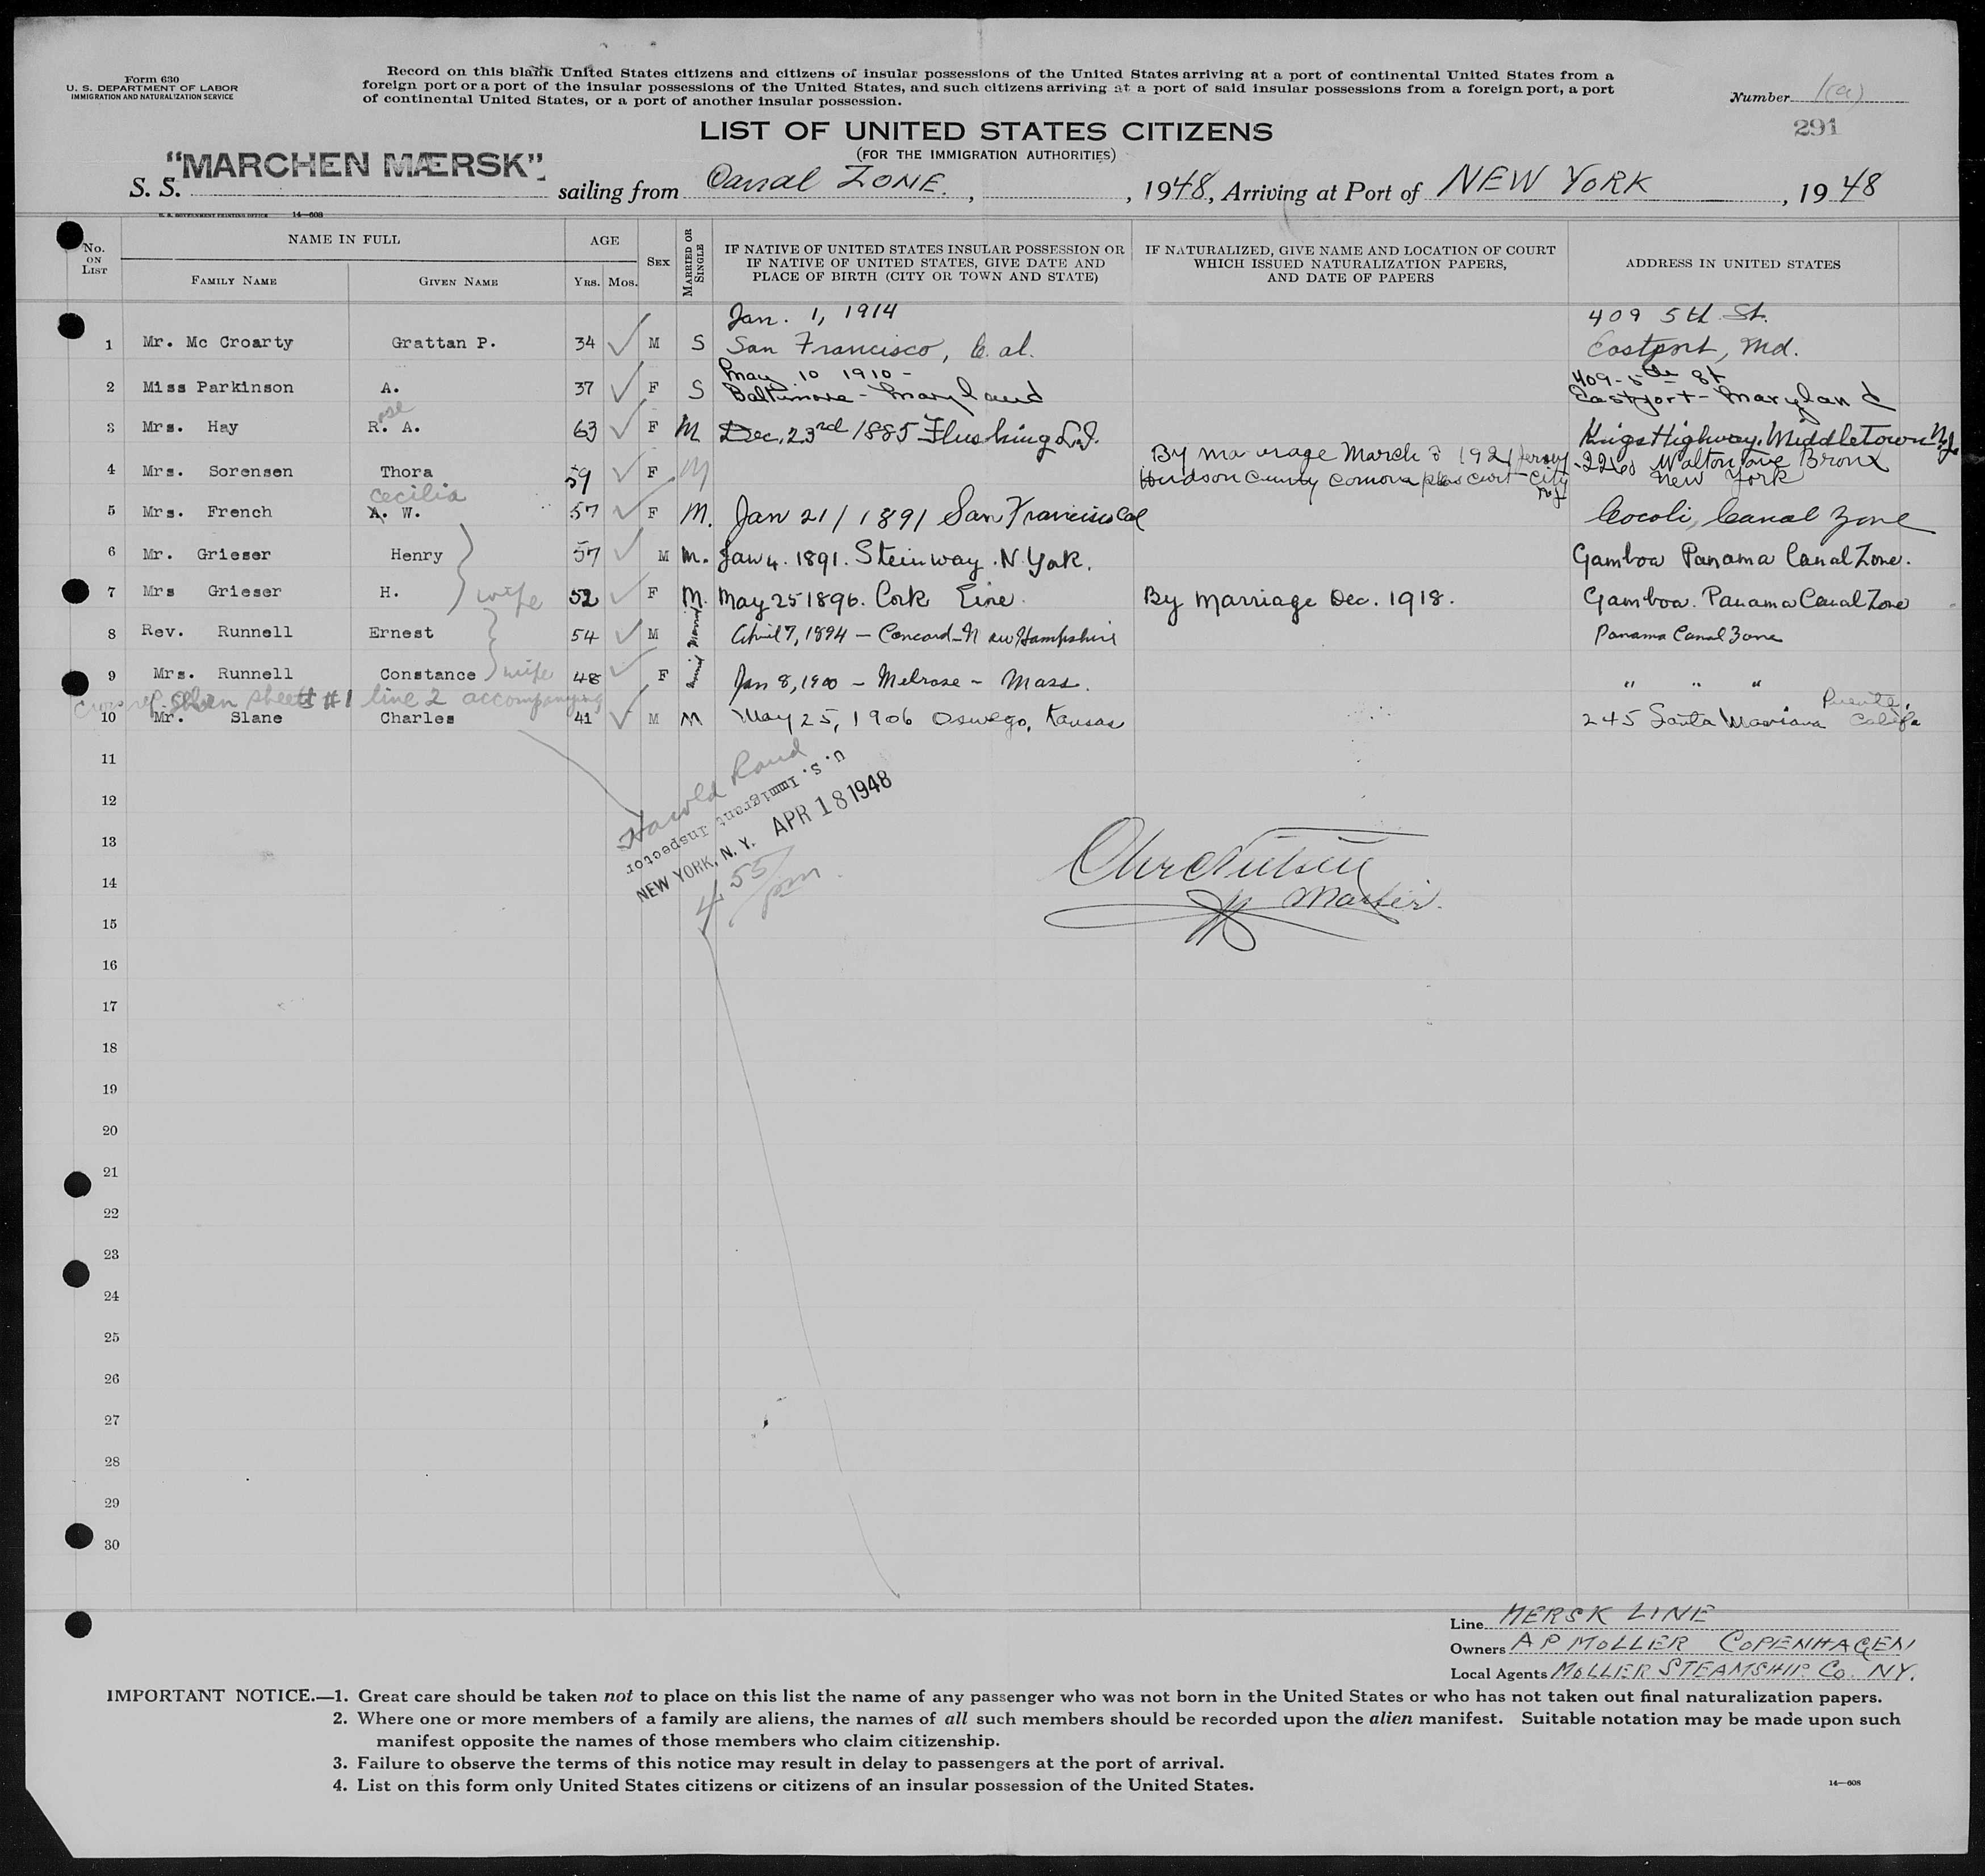 Form 630
U. S. DEPARTMENT OF LABOR
IMMIGRATION AND NATURALIZATION SERVICE
Record on this blank United States citizens and citizens of insular possessions of the United States arriving at a port of continental United States from a
foreign port or a port of the insular possessions of the United States, and such citizens arriving at a port of said insular possessions from a foreign port, a port
of continental United States, or a port of another insular possession.
Number 1(a)
291
LIST OF UNITED STATES CITIZENS
(FOR THE IMMIGRATION AUTHORITIES)
S. S. "MARCHEN MÆRSK" sailing from Canal ZONE. , , 1948, Arriving at Port of NEW YORK , 1948
U. S. GOVERNMENT PRINTING OFFICE 14—608
No. ON LIST
NAME IN FULL
FAMILY NAME
GIVEN NAME
AGE
YRS. MOS.
SEX
MARRIED OR SINGLE
IF NATIVE OF UNITED STATES INSULAR POSSESSION OR
IF NATIVE OF UNITED STATES, GIVE DATE AND
PLACE OF BIRTH (CITY OR TOWN AND STATE)
IF NATURALIZED, GIVE NAME AND LOCATION OF COURT
WHICH ISSUED NATURALIZATION PAPERS,
AND DATE OF PAPERS
ADDRESS IN UNITED STATES
Jan. 1, 1914 409 5th St.
1 Mr. Mc Croarty Grattan P. 34 M S San Francisco, Cal. Eastport, Md.
May 10 1910 - 409-5th St
2 Miss Parkinson A. 37 F S Baltimore - Maryland Eastport - Maryland
ose
3 Mrs. Hay R. A. 63 F M Dec, 23rd 1885 Flushing L.I. Kings Highway, Middletown N.J.
By marriage March 8 1921 Jersey City N.J. 2260 Walton Ave Bronx
4 Mrs. Sorensen Thora 59 F M Hudson County Common pleas Court New York
Cecilia
5 Mrs. French A. W. 57 F M. Jan 21 / 1891 San Francisco Cal Cocoli, Canal Zone
6 Mr. Grieser Henry 57 M M. Jan 4. 1891. Steinway. N. York. Gamboa Panama Canal Zone.
7 Mrs Grieser H. wife 52 F M. May 25 1896. Cork Eire. By Marriage Dec. 1918. Gamboa. Panama Canal Zone
8 Rev. Runnell Ernest 54 M Married April 7, 1894 — Concord - New Hampshire Panama Canal Zone
9 Mrs. Runnell Constance wife 48 F Married Jan 8, 1900 - Melrose - Mass. " " "
alien sheet #1 line 2 accompanying
Puente,
10 Mr. Slane Charles 41 M M May 25, 1906 Oswego, Kansas 245 Santa Mariana Calif
11
Harold Rand
12
U.S. Immigrant Inspector
NEW YORK, N. Y. APR 18 1948
13
4 55 pm
14
Master.
15
16
17
18
19
20
21
22
23
24
25
26
27
28
29
30
Line MERSK LINE
Owners A P MOLLER COPENHAGEN
Local Agents MOLLER STEAMSHIP Co. NY.
IMPORTANT NOTICE.—1. Great care should be taken not to place on this list the name of any passenger who was not born in the United States or who has not taken out final naturalization papers.
2. Where one or more members of a family are aliens, the names of all such members should be recorded upon the alien manifest. Suitable notation may be made upon such
manifest opposite the names of those members who claim citizenship.
3. Failure to observe the terms of this notice may result in delay to passengers at the port of arrival.
4. List on this form only United States citizens or citizens of an insular possession of the United States.
14—608